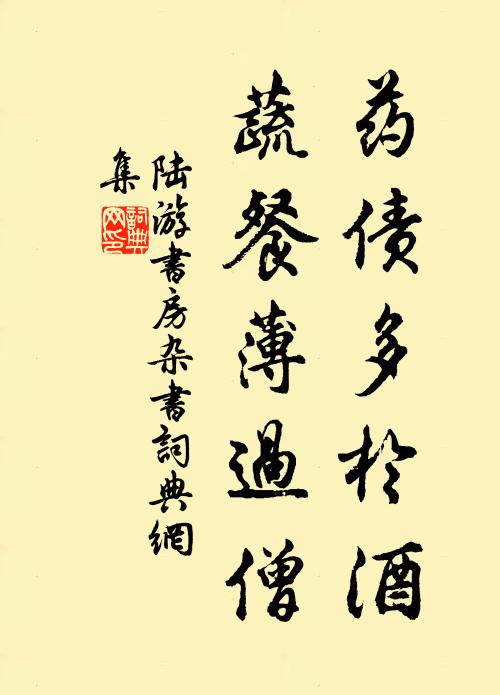 药债多於酒
蔬餐薄過僧
陆游書房杂書詞典網
集
詞典网印